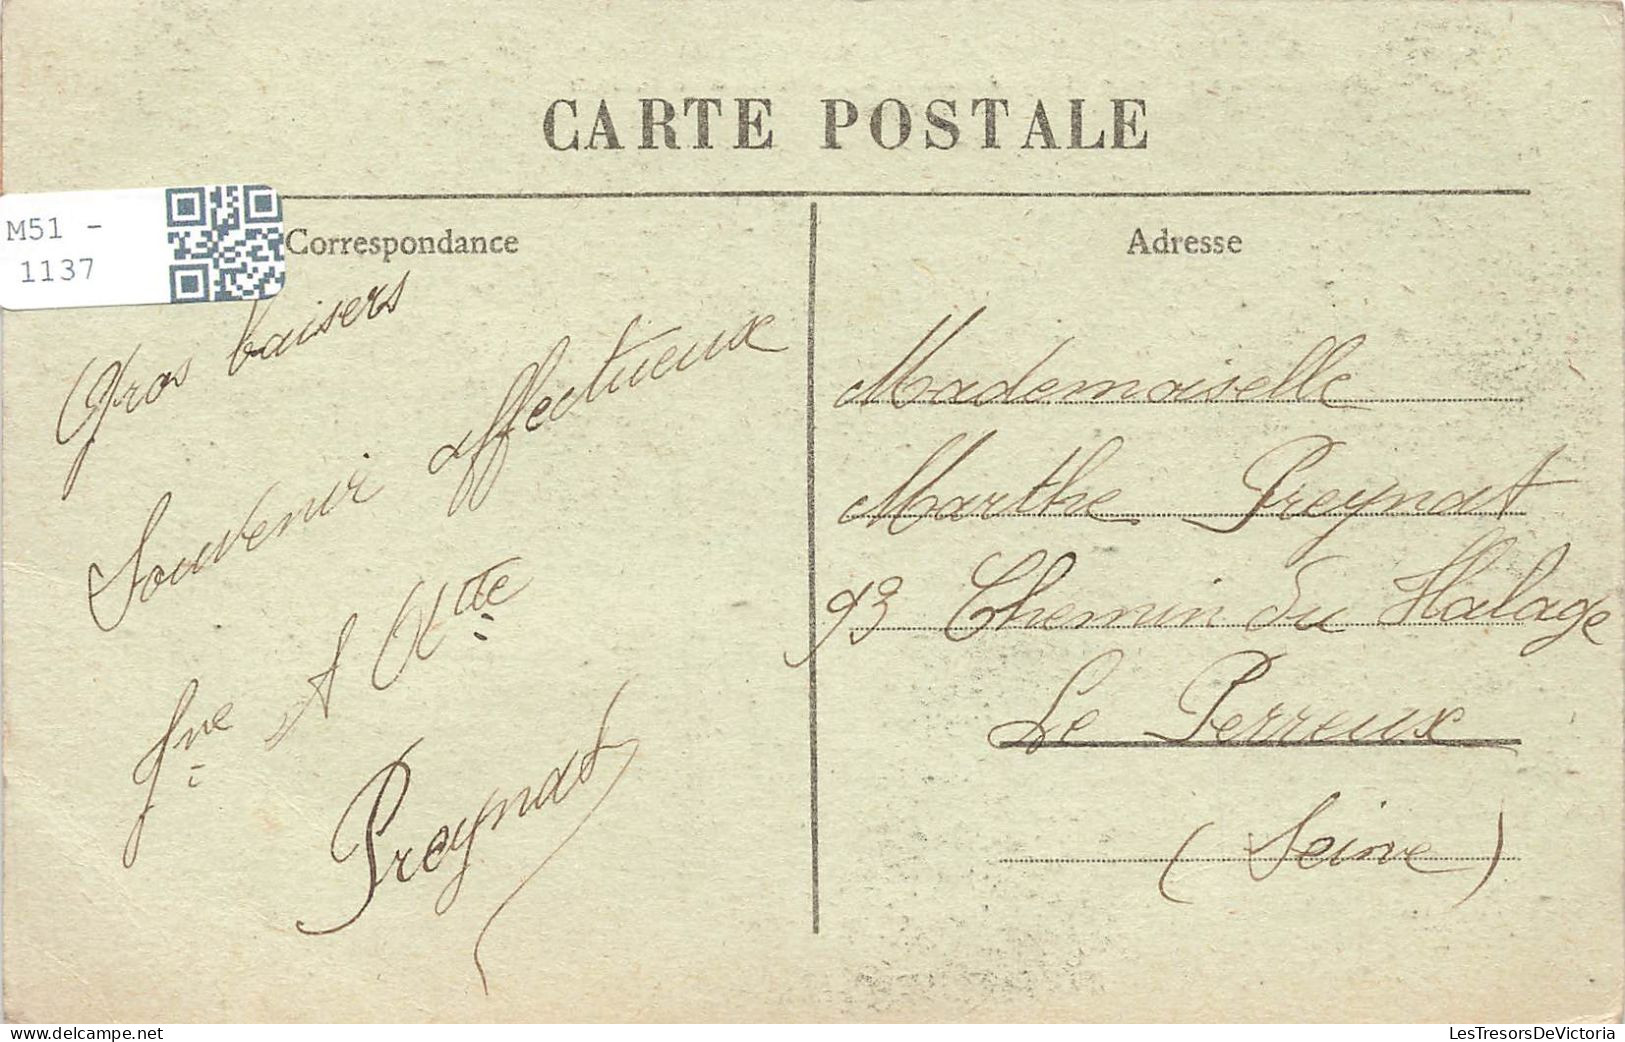 CARTE POSTALE
M51 -
1137
Correspondance
Gros baisers
Souvenir affectueux
Preynat
Adresse
Mademoiselle
Marthe Preynat
93 Chemin du Halage
Le Perreux
(Seine)
www.delcampe.net
LesTresorsDeVictoria